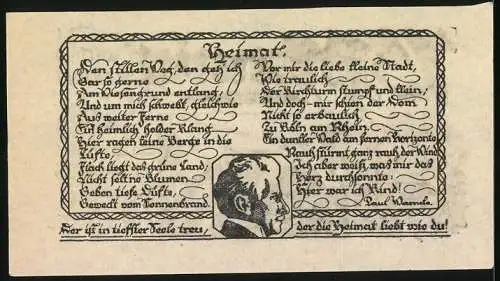 Heimat.
Den stillen Weg, den geh ich
Gar so gerne
Am Wiesengrund entlang,
Und um mich schwebt, gleichwie
Aus weiter Ferne
Ein heimlich holder Klang
Hier ragen keine Berge in die
Lüfte,
Flach liegt das grüne Land,
Nicht seltne Blumen
Geben tiefe Düfte,
Geweckt vom Sonnenbrand.
Vor mir die liebe kleine Stadt,
Wie traulich
Der Kirchturm stumpf und klein,
Und doch – mir schien der Dom
Nicht so erbaulich
Zu Köln am Rhein.
Ein dunkler Wald am fernen Horizonte
Rauh stürmt ganz rauh der Wind
Ich aber weiß, was mir das
Herz durchsonnte:
Hier war ich Kind!
Paul Warncke.
Der ist in tiefster Seele treu,
der die Heimat liebt wie du!